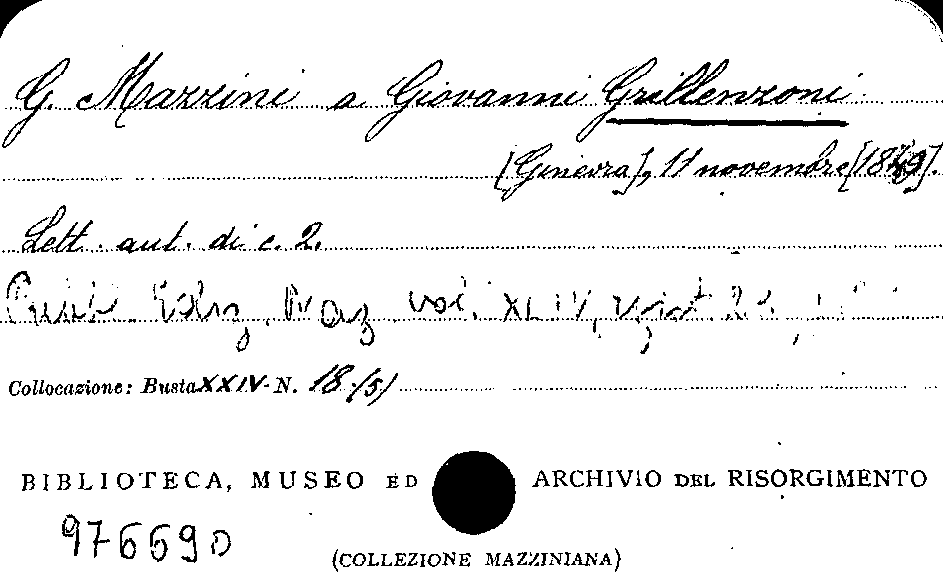 G. Mazzini a Giovanni Grillenzoni
[Ginevra], 11 novembre [1849].
Lett. aut. di c. 2.
Pubbl. Ediz. Naz. vol. XLIV,
Collocazione: Busta XXIV - N. 18 (5)
BIBLIOTECA, MUSEO ED ARCHIVIO DEL RISORGIMENTO
976690
(COLLEZIONE MAZZINIANA)